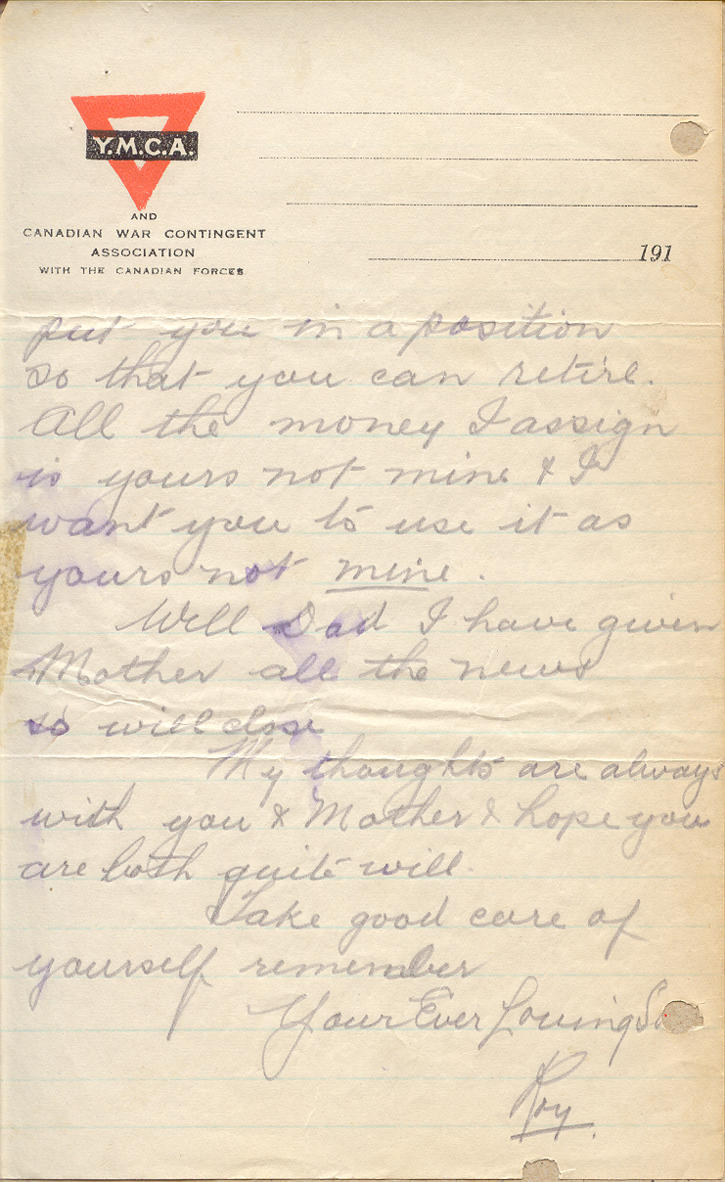 Y.M.C.A.
AND
CANADIAN WAR CONTINGENT
ASSOCIATION
WITH THE CANADIAN FORCES
191
put you in a position
so that you can retire.
All the money I assign
is yours not mine & I
want you to use it as
yours not mine.
Well Dad I have given
Mother all the news
so will close
My thoughts are always
with you & Mother & hope you
are both quite will.
Take good care of
yourself remember
Your Ever Loving
Roy.